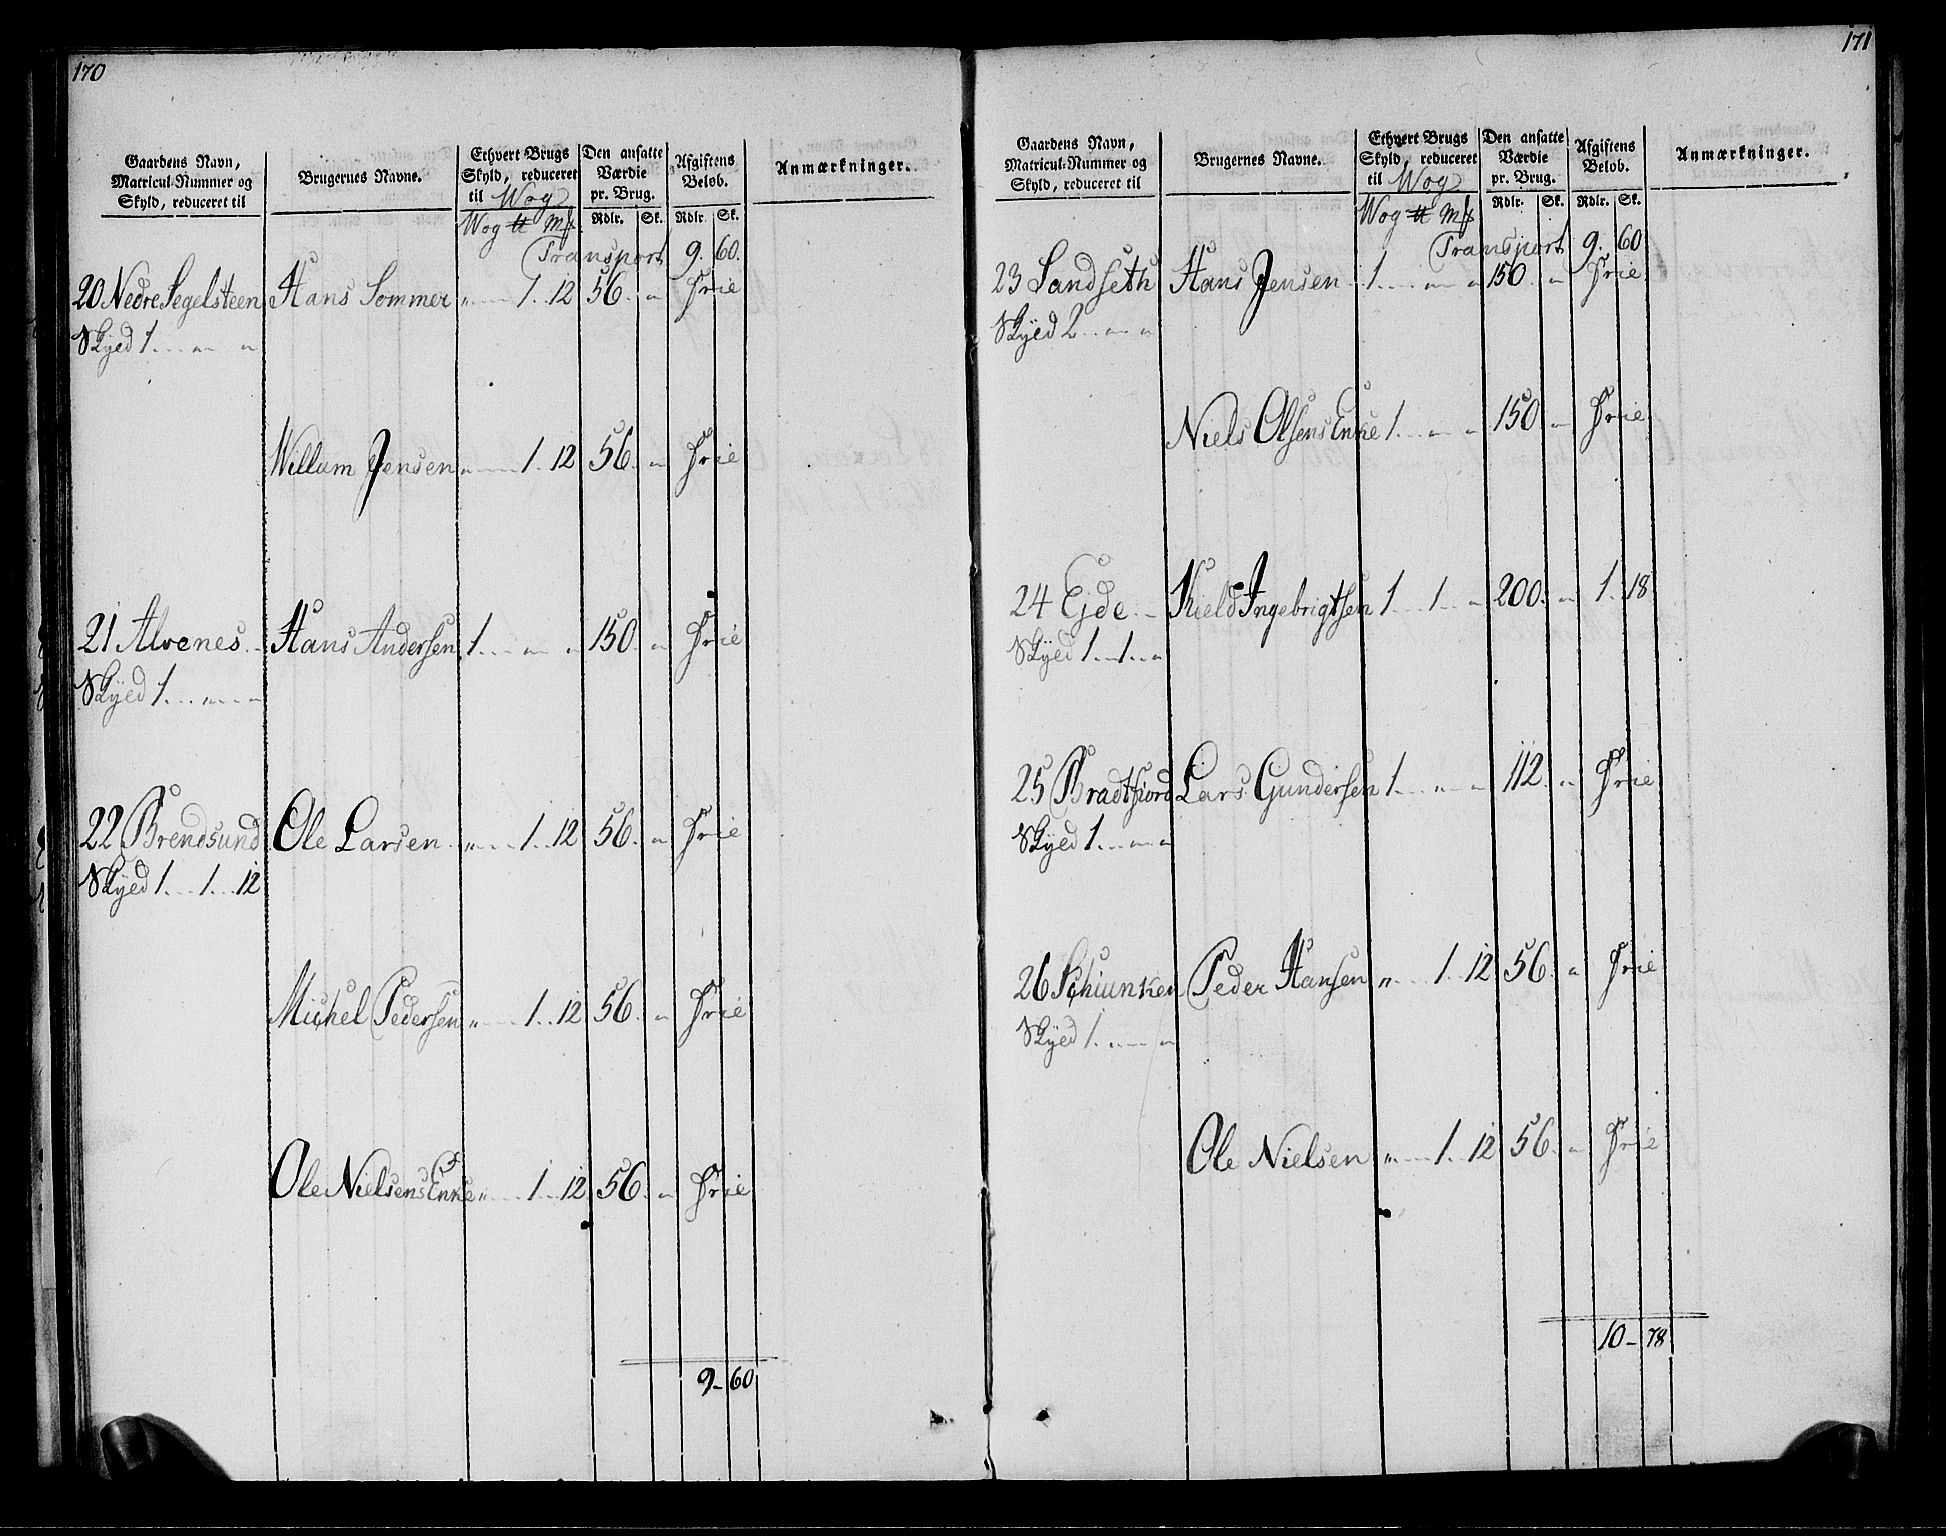 170
Gaardens Navn, Matricul-Nummer og Skyld, reduceret til | Brugernes Navne. | Ethvert Brugs Skyld, reduceret til Wog | Den ansatte Værdie pr. Brug. | Afgiftens Beløb. | Anmærkninger.
Wog ₶ Mk | Rdlr. | Sk. | Rdlr. | Sk.
Transport 9. 60.
20 Nedre Segelsteen Hans Sommer „ 1. 12 56. „ Frie
Skyed 1 „ „
Willum Jensen „ 1. 12 56. „ Frie
21 Alvenes Hans Andersen 1 „ „ 150. „ Frie
Skyed 1 „ „
22 Brendsund Ole Larsen „ 1. 12 56. „ Frie
Skyed 1 1 12
Michel Pedersen „ 1. 12 56. „ Frie
Ole Nielsens Enke „ 1. 12 56. „ Frie
9 - 60
171
Gaardens Navn, Matricul-Nummer og Skyld, reduceret til | Brugernes Navne. | Ethvert Brugs Skyld, reduceret til Wog | Den ansatte Værdie pr. Brug. | Afgiftens Beløb. | Anmærkninger.
Wog ₶ Mk | Rdlr. | Sk. | Rdlr. | Sk.
Transport 9. 60
23 Sandseth Hans Jensen 1 „ „ 150. „ Frie
Skyed 2 „ „
Niels Olsens Enke 1 „ „ 150. „ Frie
24 Ejde Kield Ingebrigtsen 1 1 „ 200. „ 1. 18
Skyed 1 1 „
25 Bradtfiord Lars Gundersen 1 „ „ 112. „ Frie
Skyed 1 „ „
26 Schiunken Peder Hansen „ 1. 12 56. „ Frie
Skyed 1 „ „
Ole Nielsen „ 1. 12 56. „ Frie
10 - 78